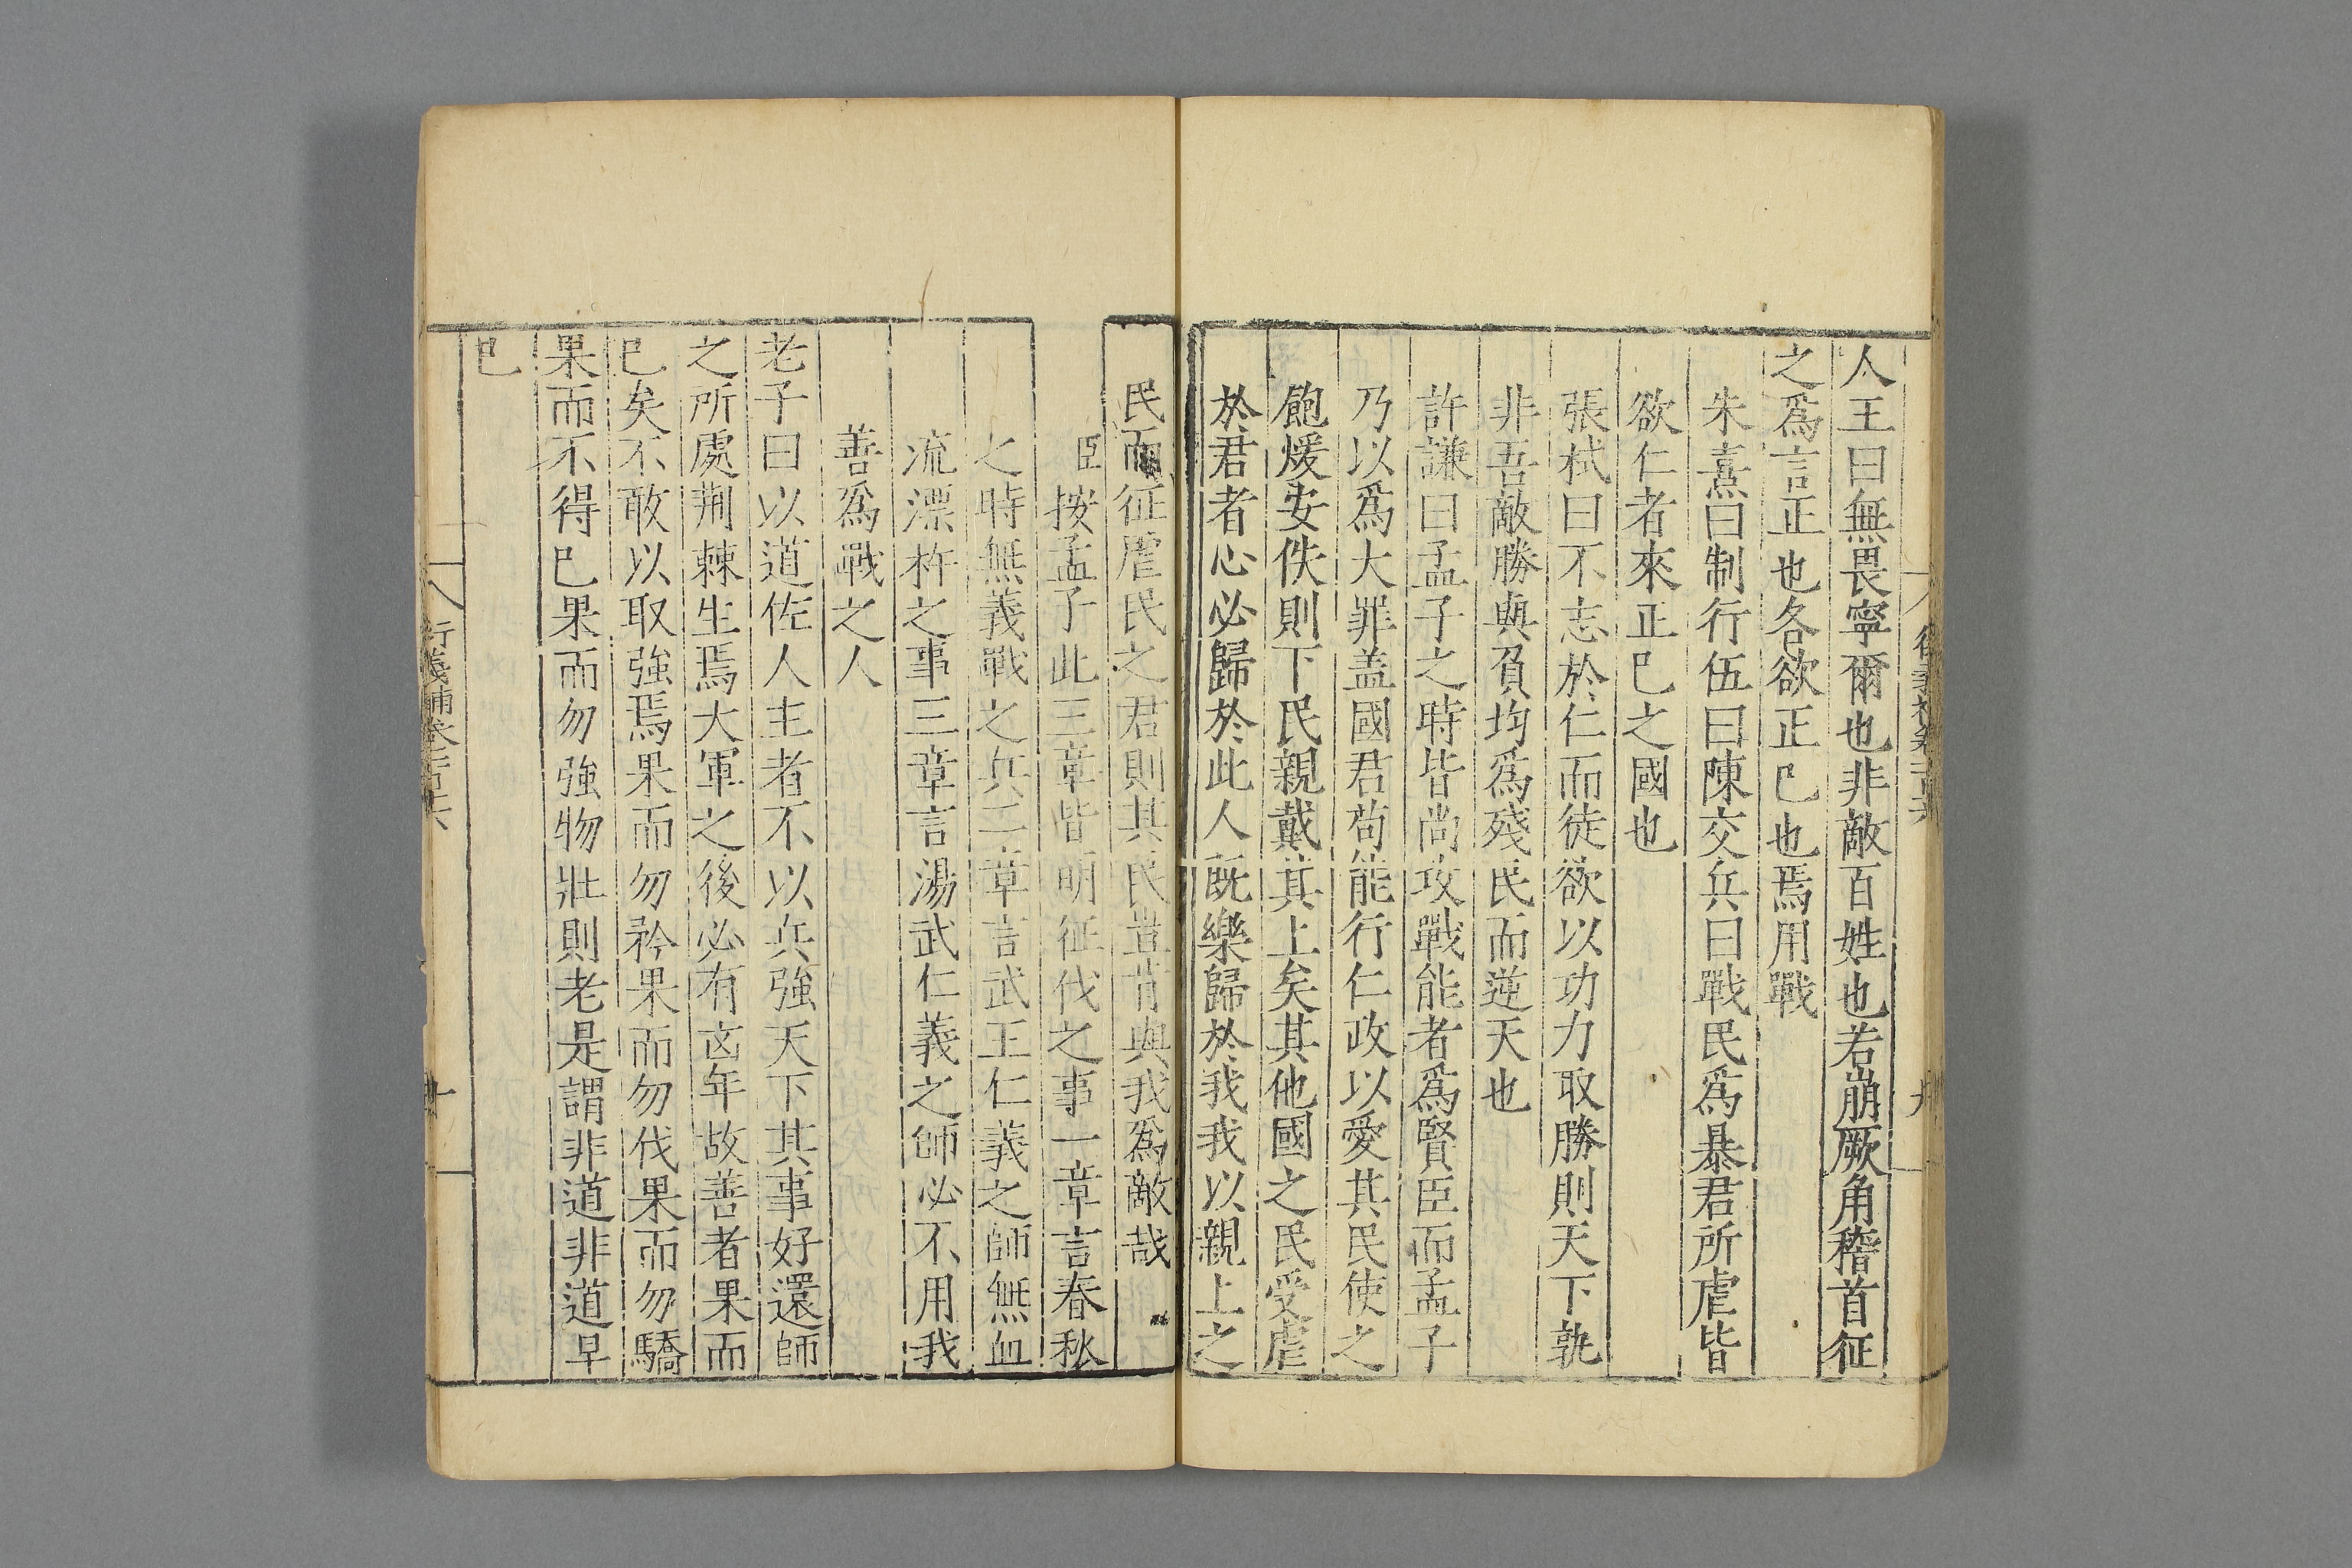 人王曰無畏寧爾也非敵百姓也若崩厥角稽首征
之爲言正也各欲正巳也焉用戰
朱熹曰制行伍曰陳交兵曰戰民爲暴君所虐皆
欲仁者來正巳之國也
張栻曰不志於仁而徒欲以功力取勝則天下孰
非吾敵勝與負均爲殘民而逆天也
許謙曰孟子之時皆尚攻戰能者爲賢臣而孟子
乃以爲大罪盖國君苟能行仁政以愛其民使之
飽煖安佚則下民親戴其上矣其他國之民受虐
於君者心必歸於此人旣樂歸於我我以親上之
民而征虐民之君則其民豈肯與我爲敵哉
臣按孟子此三章皆明征伐之事一章言春秋
之時無義戰之兵二章言武王仁義之師無血
流漂杵之事三章言湯武仁義之師必不用我
善爲戰之人
老子曰以道佐人主者不以兵強天下其事好還師
之所處荆棘生焉大軍之後必有凶年故善者果而
巳矣不敢以取強焉果而勿矜果而勿伐果而勿驕
果而不得巳果而勿強物壯則老是謂非道非道早
巳
衍義補卷一百十六
十